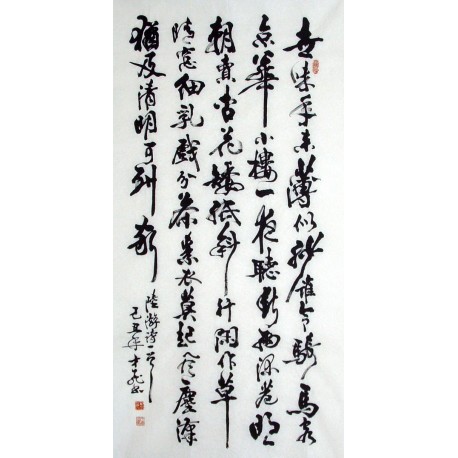 世味年来薄似紗誰令騎馬客
京華小樓一夜聽春雨深巷明
朝賣杏花矮紙斜行闲作草
晴窓細乳戲分茶素衣莫起風塵嘆
猶及清明可到家
陸游詩一首
己丑年